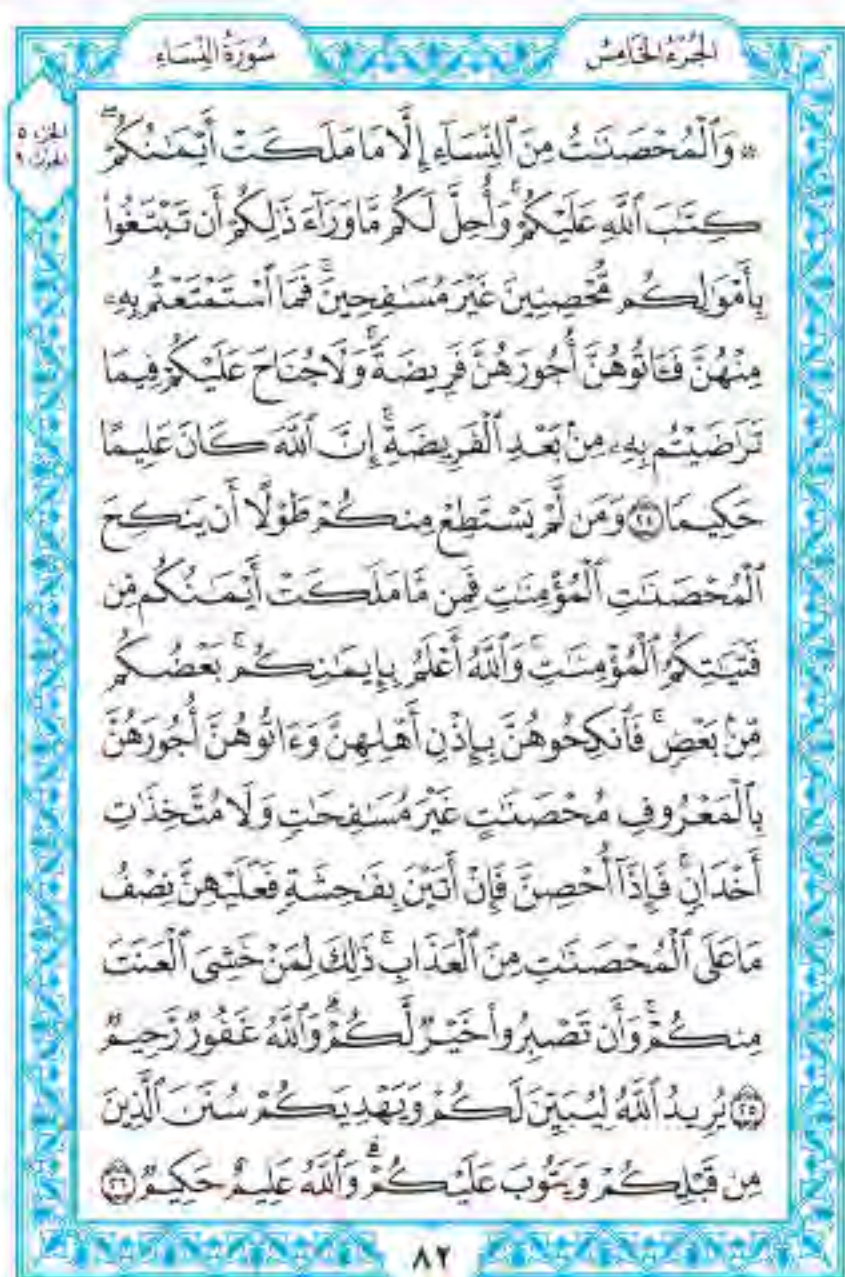 الجُزْءُ الخَامِسُ
سُورَةُ النِّسَاءِ
۞ وَٱلْمُحْصَنَٰتُ مِنَ ٱلنِّسَآءِ إِلَّا مَا مَلَكَتْ أَيْمَٰنُكُمْۖ
كِتَٰبَ ٱللَّهِ عَلَيْكُمْۚ وَأُحِلَّ لَكُم مَّا وَرَآءَ ذَٰلِكُمْ أَن تَبْتَغُوا۟
بِأَمْوَٰلِكُم مُّحْصِنِينَ غَيْرَ مُسَٰفِحِينَۚ فَمَا ٱسْتَمْتَعْتُم بِهِۦ
مِنْهُنَّ فَـَٔاتُوهُنَّ أُجُورَهُنَّ فَرِيضَةًۚ وَلَا جُنَاحَ عَلَيْكُمْ فِيمَا
تَرَٰضَيْتُم بِهِۦ مِنۢ بَعْدِ ٱلْفَرِيضَةِۚ إِنَّ ٱللَّهَ كَانَ عَلِيمًا
حَكِيمًا ٢٤ وَمَن لَّمْ يَسْتَطِعْ مِنكُمْ طَوْلًا أَن يَنكِحَ
ٱلْمُحْصَنَٰتِ ٱلْمُؤْمِنَٰتِ فَمِن مَّا مَلَكَتْ أَيْمَٰنُكُم مِّن
فَتَيَٰتِكُمُ ٱلْمُؤْمِنَٰتِۚ وَٱللَّهُ أَعْلَمُ بِإِيمَٰنِكُمۚ بَعْضُكُم
مِّنۢ بَعْضٍۚ فَٱنكِحُوهُنَّ بِإِذْنِ أَهْلِهِنَّ وَءَاتُوهُنَّ أُجُورَهُنَّ
بِٱلْمَعْرُوفِ مُحْصَنَٰتٍ غَيْرَ مُسَٰفِحَٰتٍ وَلَا مُتَّخِذَٰتِ
أَخْدَانٍۚ فَإِذَآ أُحْصِنَّ فَإِنْ أَتَيْنَ بِفَٰحِشَةٍ فَعَلَيْهِنَّ نِصْفُ
مَا عَلَى ٱلْمُحْصَنَٰتِ مِنَ ٱلْعَذَابِۚ ذَٰلِكَ لِمَنْ خَشِىَ ٱلْعَنَتَ
مِنكُمْۚ وَأَن تَصْبِرُوا۟ خَيْرٌ لَّكُمْۗ وَٱللَّهُ غَفُورٌ رَّحِيمٌ
٢٥ يُرِيدُ ٱللَّهُ لِيُبَيِّنَ لَكُمْ وَيَهْدِيَكُمْ سُنَنَ ٱلَّذِينَ
مِن قَبْلِكُمْ وَيَتُوبَ عَلَيْكُمْۗ وَٱللَّهُ عَلِيمٌ حَكِيمٌ ٢٦
٨٢